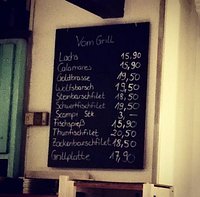 Vom Grill
Lachs 15,90
Calamares 15,90
Goldbrasse 19,50
Wolfsbarsch 19,50
Steinbarschfilet 18,50
Schwertfischfilet 19,50
Scampi Stk 3,-
Fischspieß 15,90
Thunfischfilet 20,50
Zackenbarschfilet 18,50
Grillplatte 17,90